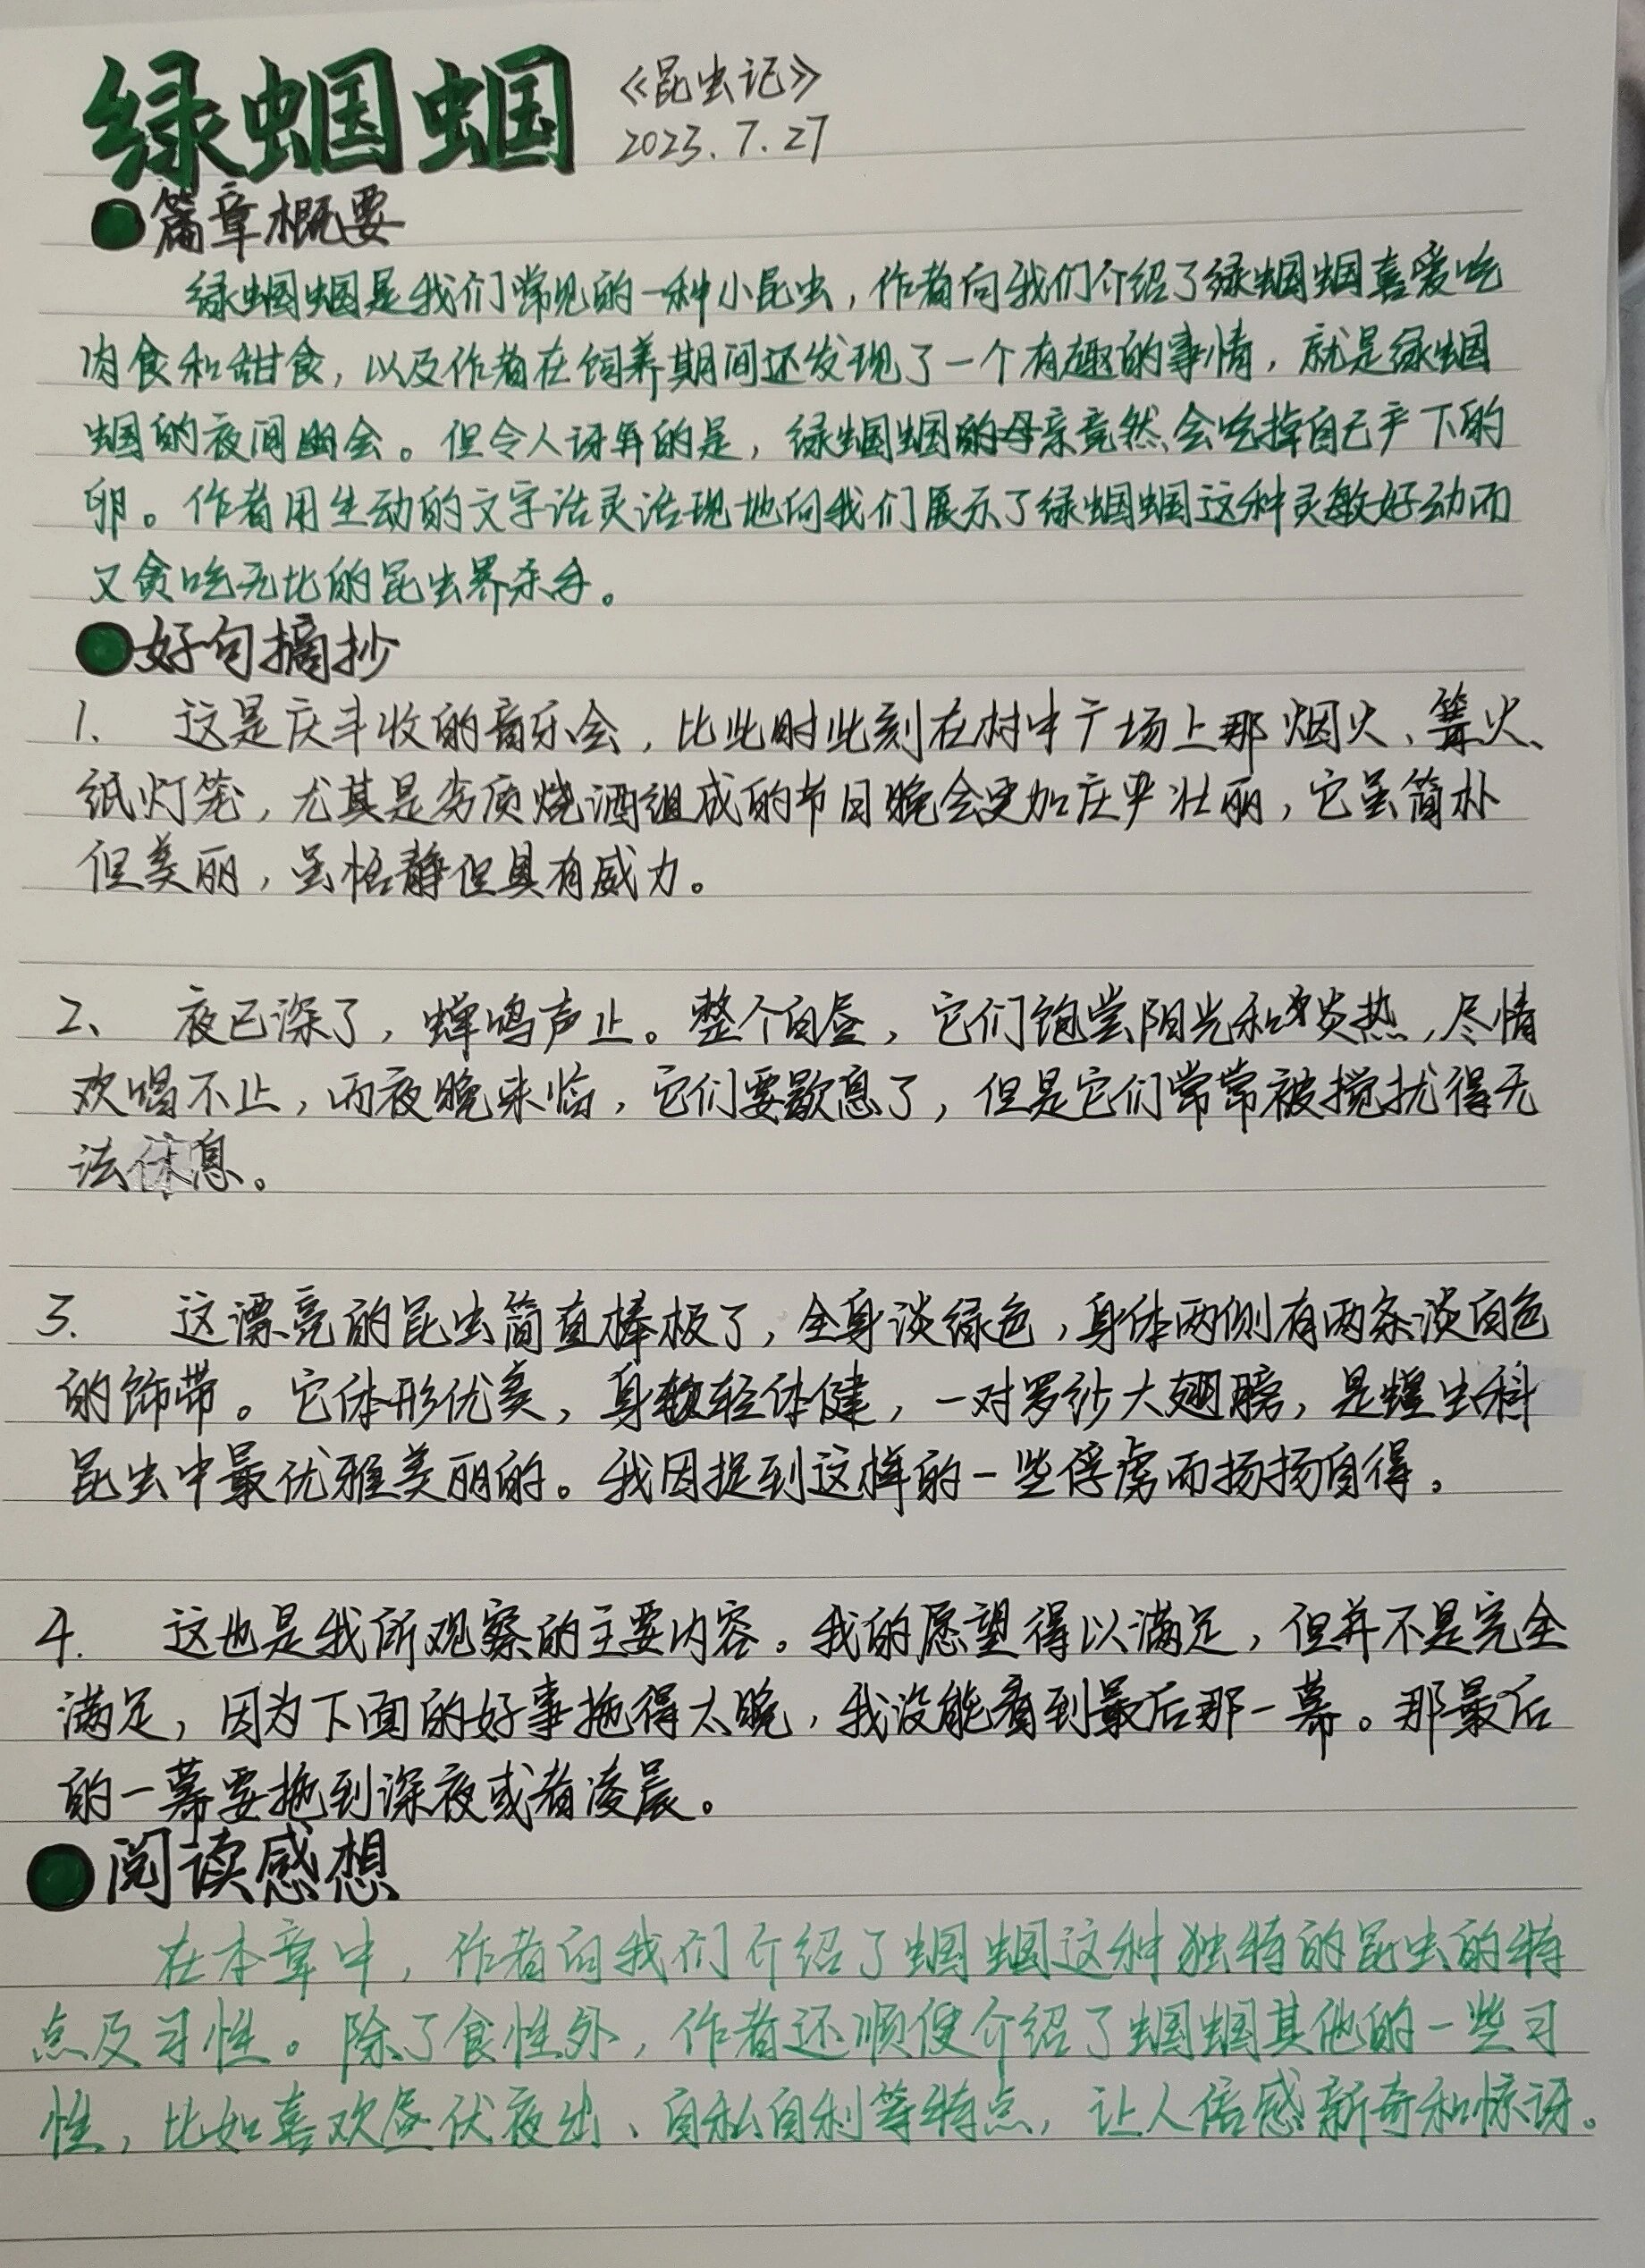 绿蝈蝈 《昆虫记》
2023.7.27
篇章概要
绿蝈蝈是我们常见的一种小昆虫，作者向我们介绍了绿蝈蝈喜爱吃
肉食和甜食，以及作者在饲养期间还发现了一个有趣的事情，就是绿蝈
蝈的夜间幽会。但令人讶异的是，绿蝈蝈的母亲竟然会吃掉自己产下的
卵。作者用生动的文字活灵活现地向我们展示了绿蝈蝈这种灵敏好动而
又贪吃无比的昆虫界杀手。
好句摘抄
1. 这是庆丰收的音乐会，比此时此刻在村中广场上那烟火、篝火、
纸灯笼，尤其是劣质烧酒组成的节日晚会更加庄严壮丽，它虽简朴
但美丽，虽恬静但具有威力。
2、 夜已深了，蝉鸣声止。整个白昼，它们饱尝阳光和炎热，尽情
欢唱不止，而夜晚来临，它们要歇息了，但是它们常常被搅扰得无
法休息。
3. 这漂亮的昆虫简直棒极了，全身淡绿色，身体两侧有两条淡白色
的饰带。它体形优美，身轻体健，一对罗纱大翅膀，是蝗虫科
昆虫中最优雅美丽的。我因捉到这样的一些俘虏而扬扬自得。
4. 这也是我所观察的主要内容。我的愿望得以满足，但并不是完全
满足，因为下面的好事拖得太晚，我没能看到最后那一幕。那最后
的一幕要拖到深夜或者凌晨。
阅读感想
在本章中，作者向我们介绍了蝈蝈这种独特的昆虫的特
点及习性。除了食性外，作者还顺便介绍了蝈蝈其他的一些习
性，比如喜欢昼伏夜出、自私自利等特点，让人倍感新奇和惊讶。